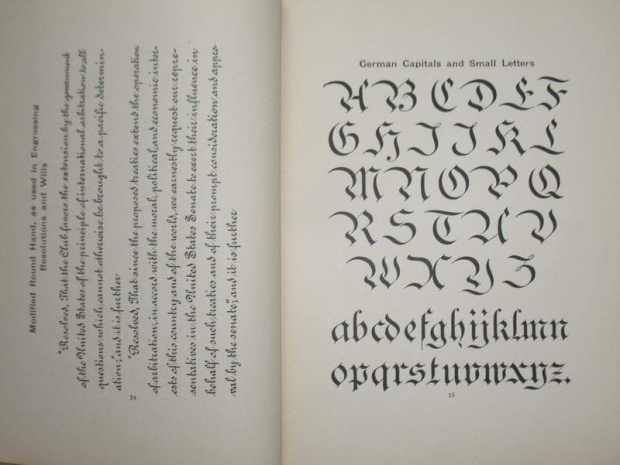 Modified Round Hand, as used in Engrossing
Resolutions and Wills
"Resolved, That the Club favors the extension by the government
of the United States of the principle of international arbitration to all
questions which cannot otherwise be brought to a pacific determin-
ation;" and it is further
"Resolved, That since the proposed treaties extend the operation
of arbitration, in accord with the moral, political, and economic inter-
ests of this country and of the world, we earnestly request our repre-
sentatives in the United States Senate to exert their influence in
behalf of such treaties and of their prompt consideration and appro-
val by the senate;" and it is further
German Capitals and Small Letters
A B C D E F
G H I J K L
M N O P Q
R S T U V
W X Y Z
abcdefghijklmn
opqrstuvwxyz.
15